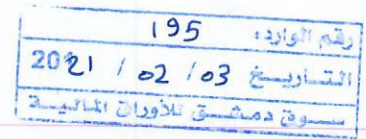 رقم الوارد: 195
التاريخ 2021 / 02 / 03
سوق دمشق للأوراق المالية